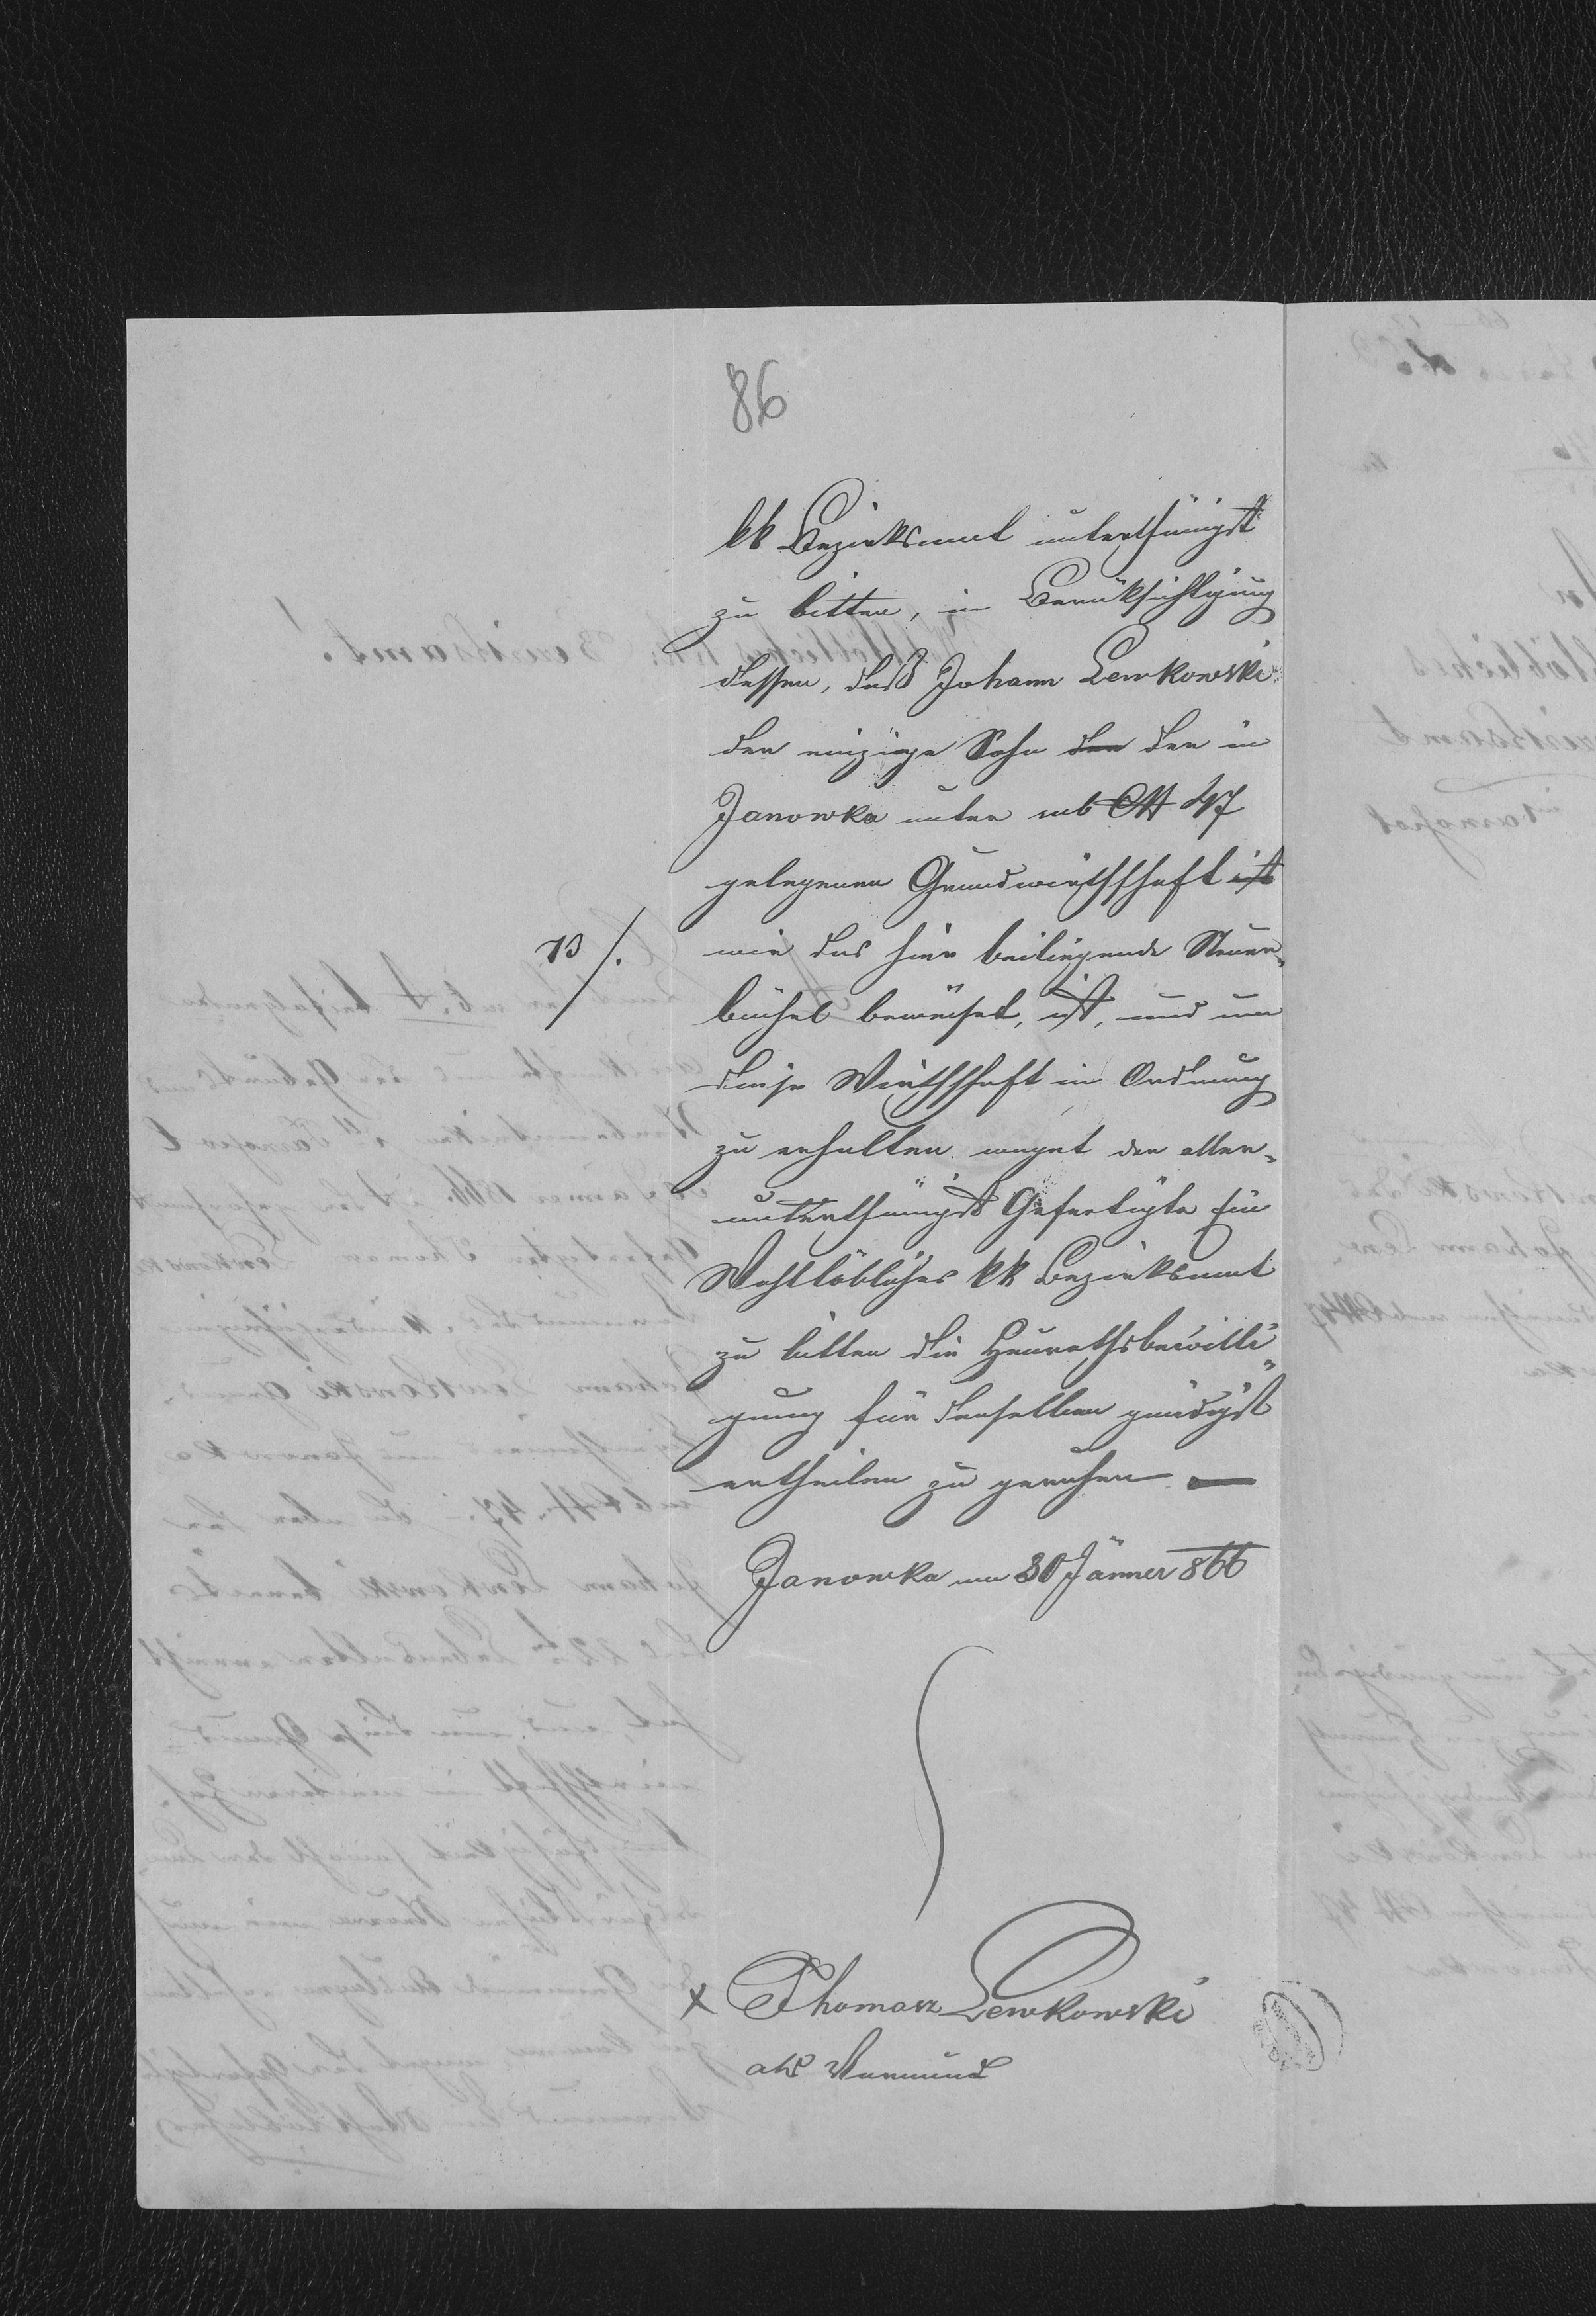 86
kk Bezirksamt unterthänigst
zu bitten, in Berüksichtigung
dessen, daß Johann Lewkowski
der einzige Sohn der der in
Janowka unter sub CN 47
gelegenen Grundwirthschaft ist
B /. wie das hier beiliegende Steuer„
büchel beweiset, ist, und um
diese Wirthschaft in Ordnung
zu erhalten waget der aller„
unterthänigst Gefertigte Ein
Wohllöbliches kk Bezirksamt
zu bitten die Heurathsbewilli„
gung für denselben gnädigst
ertheilen zu geruhen —
Janowka am 30 Jänner 866
x Thomasz Lewkowski
als Vormund